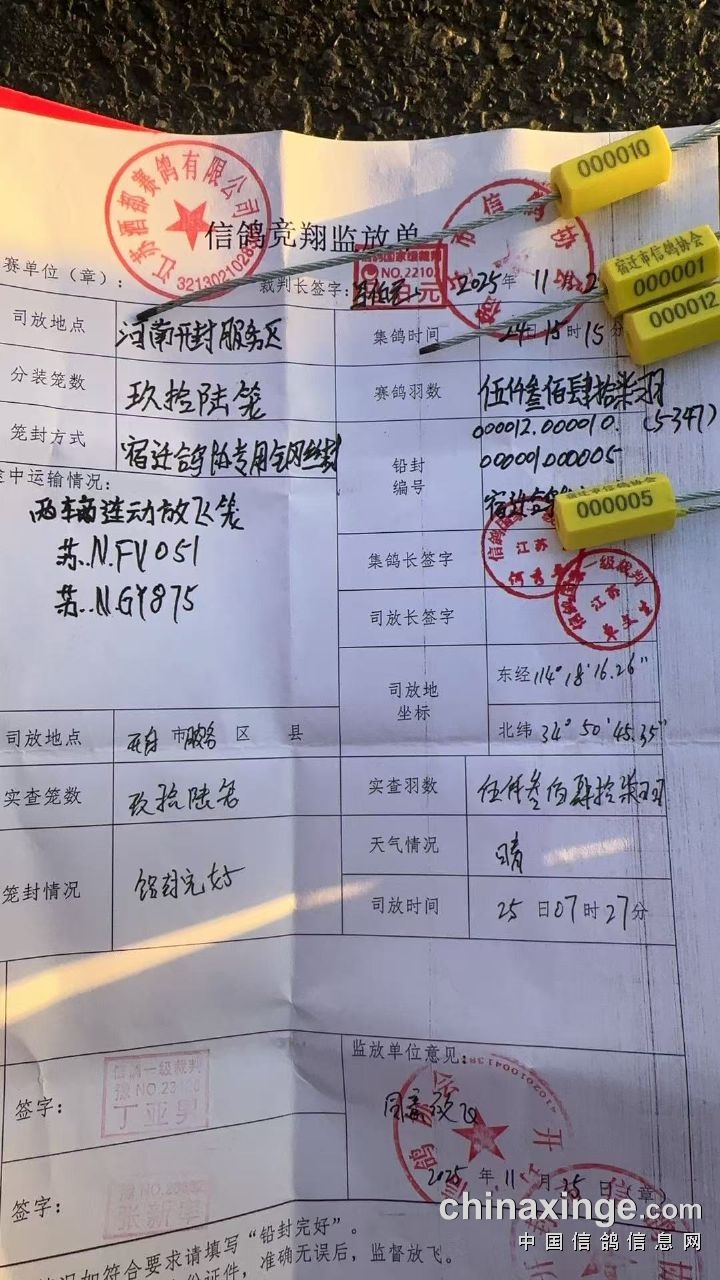 江苏酒都赛鸽有限公司
信鸽竞翔监放单
000010
宿迁市信鸽协会
000001
000012
赛单位（章）：
裁判长签字：
信鸽国家级裁判
2025年 11
司放地点
河南开封服务区
集鸽时间
24日15时15分
分装笼数
玖拾陆笼
赛鸽羽数
伍仟叁佰肆拾柒羽
(5347)
笼封方式
铅封
编号
000012.000010.
000001000005
宿迁市信鸽协会
000005
途中运输情况：
两车厢连动放飞笼
苏.N.FV051
苏.N.GY875
集鸽长签字
江苏
司放长签字
一级裁判
江苏
司放地
坐标
东经114°18'16.26"
北纬34°50'45.35"
司放地点
市服务区 县
实查笼数
玖拾陆笼
实查羽数
伍仟叁佰肆拾柒羽
天气情况
晴
笼封情况
铅封完好
司放时间
25日07时27分
监放单位意见：
签字：
信鸽一级裁判
丁亚男
同意放飞
2025年11月25日（章）
签字：
情况如符合要求请填写“铅封完好”。
份证件，准确无误后，监督放飞。
chinaxinge.com
中国信鸽信息网